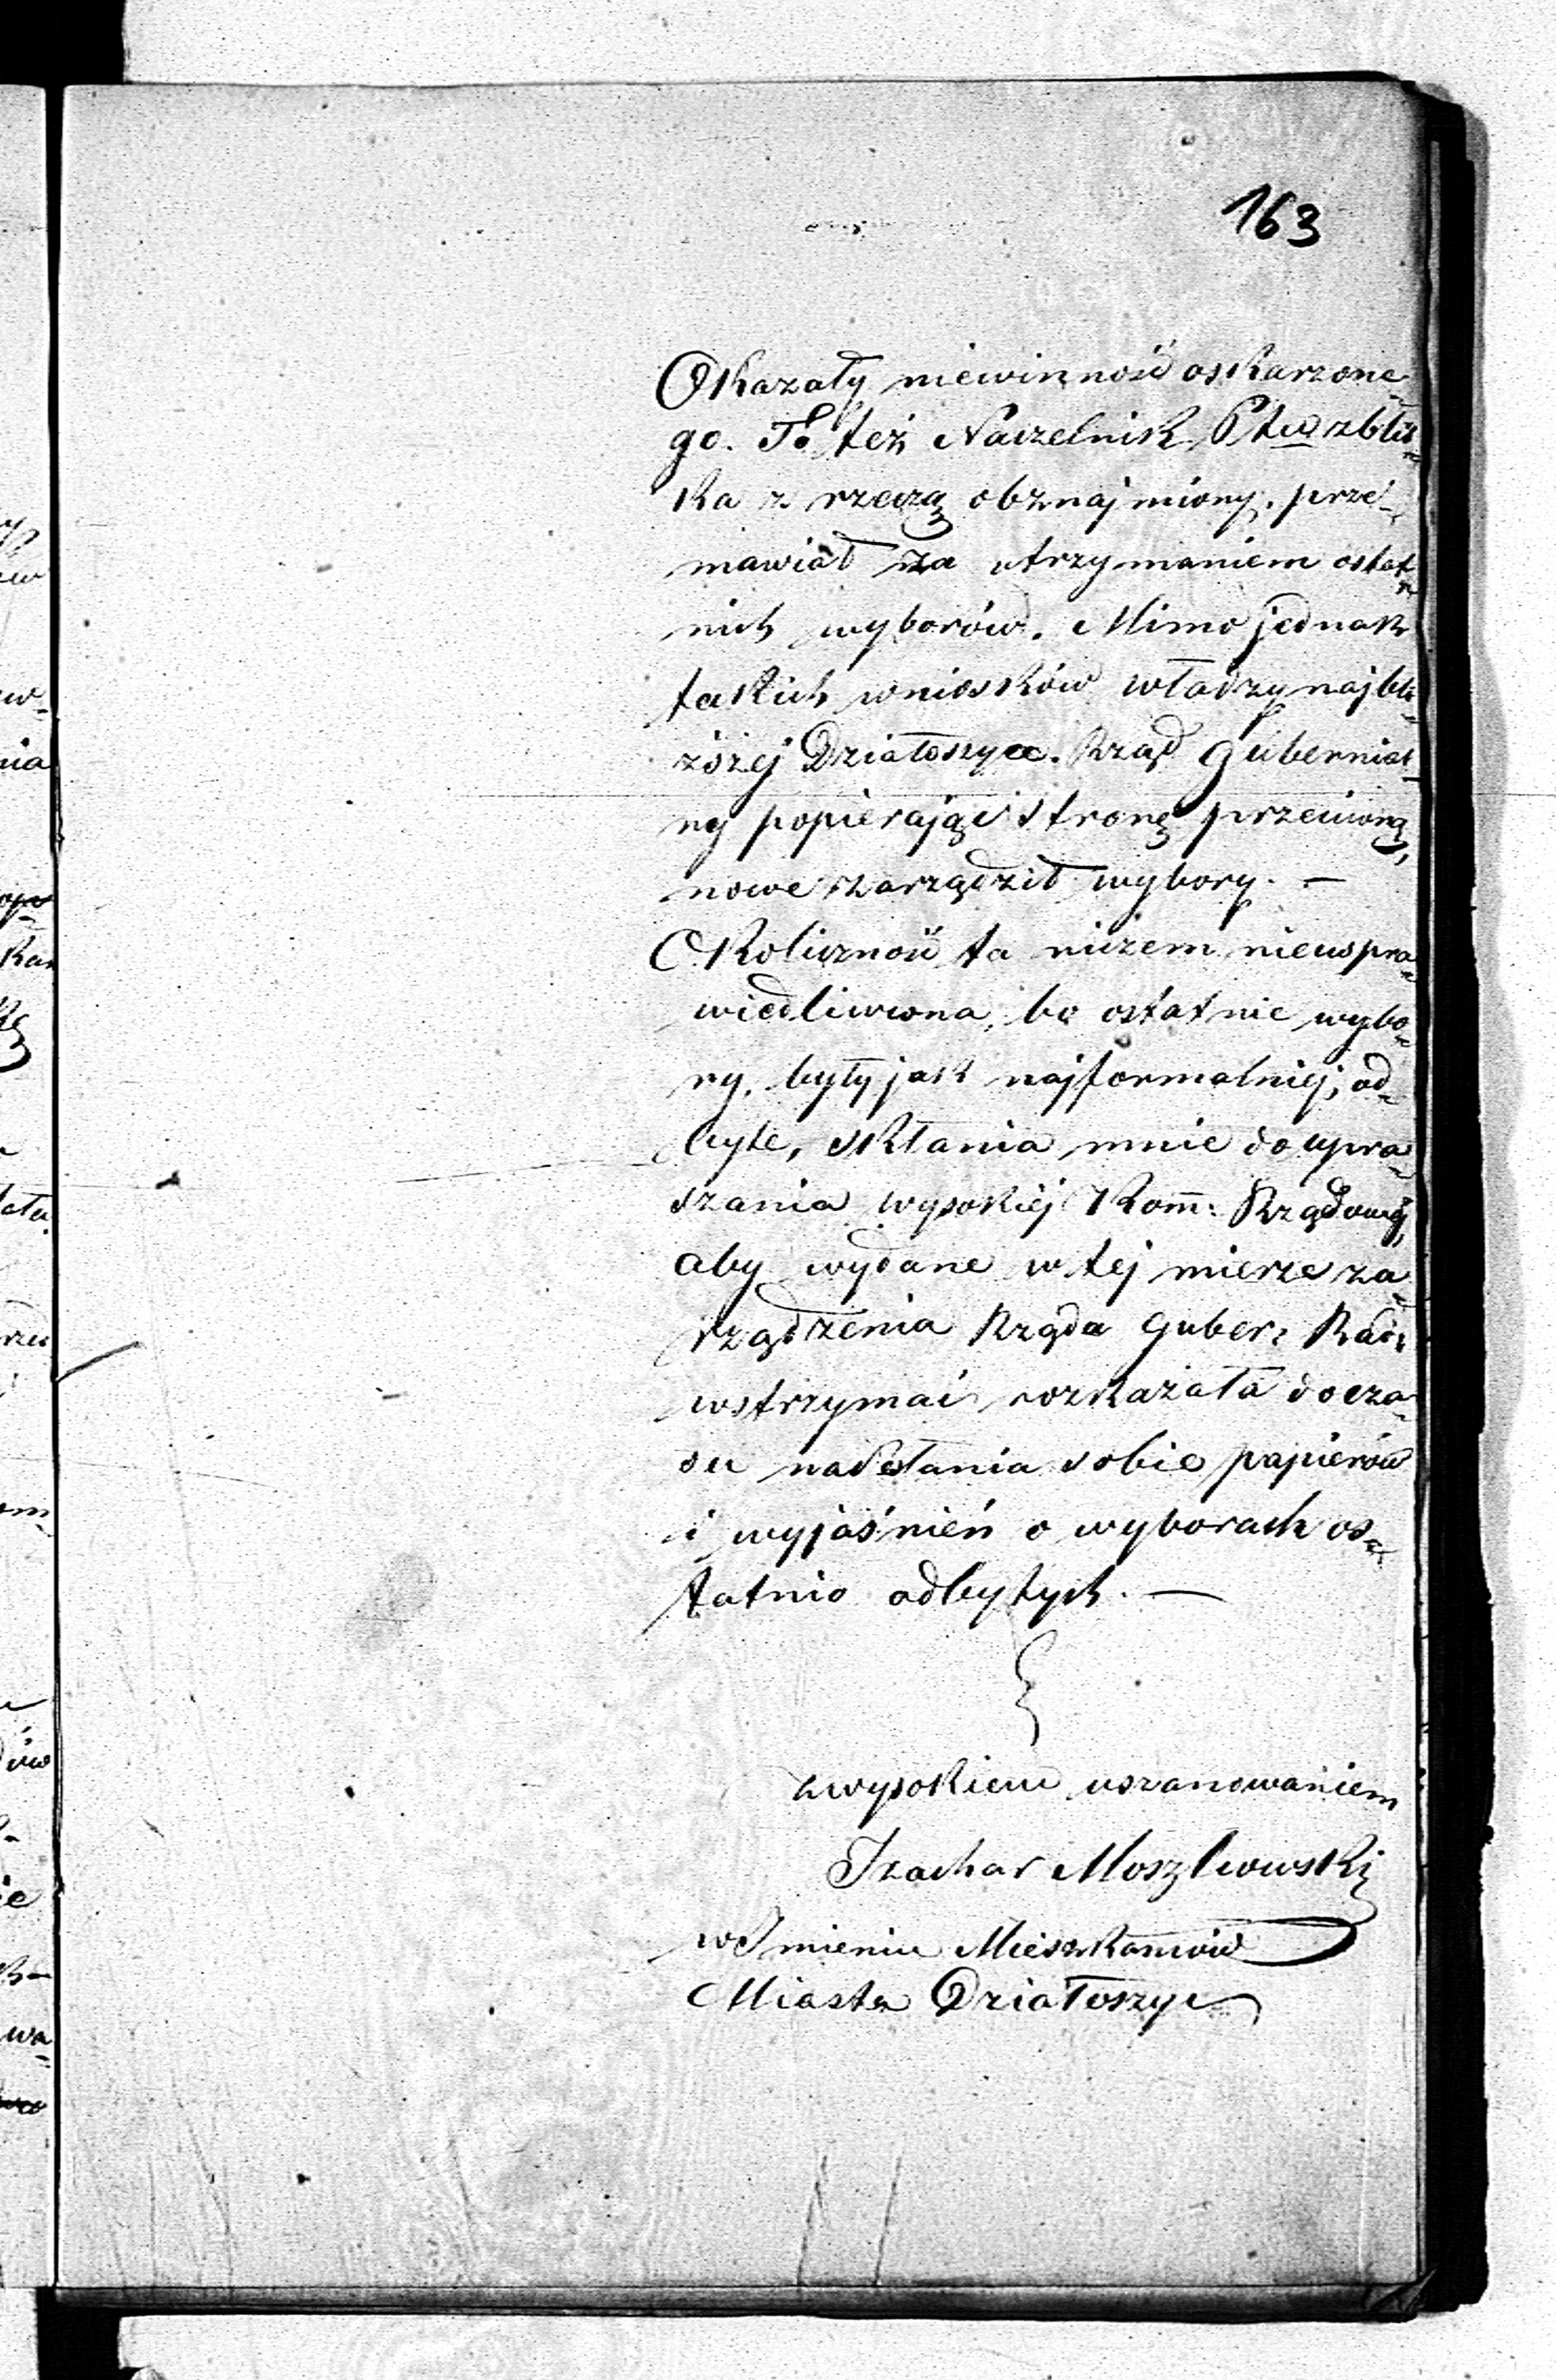 163
Okazały niewinność oskarzone-
go. To też Naczelnik Ptu zbliz-
ka z rzeczą obznajmiony, prze-
mawiał za utrzymaniem ostat-
nich wyborów. Mimo jednak
takich wniosków władzy najbli-
ższej Działoszyc. Rząd Gubernial-
ny popierając stronę przeciwną,
nowe zarządził wybory. —
Okoliczność ta niczem nieuspra-
wiedliwiona, bo ostatnie wybo-
ry, były jak najformalniej, od-
byte, skłania mnie do upra-
szania wysokiej Kom: Rządowej,
aby wydane w tej mierze za-
rządzenia Rządu Guber: Rad:
wstrzymać rozkazała do cza-
su nadesłania sobie papierów
i wyjaśnień o wyborach os-
tatnio odbytych. —
z wysokiem uszanowaniem
Izachar Moszkowski
w Imieniu Mieszkańców
Miasta Działoszyc